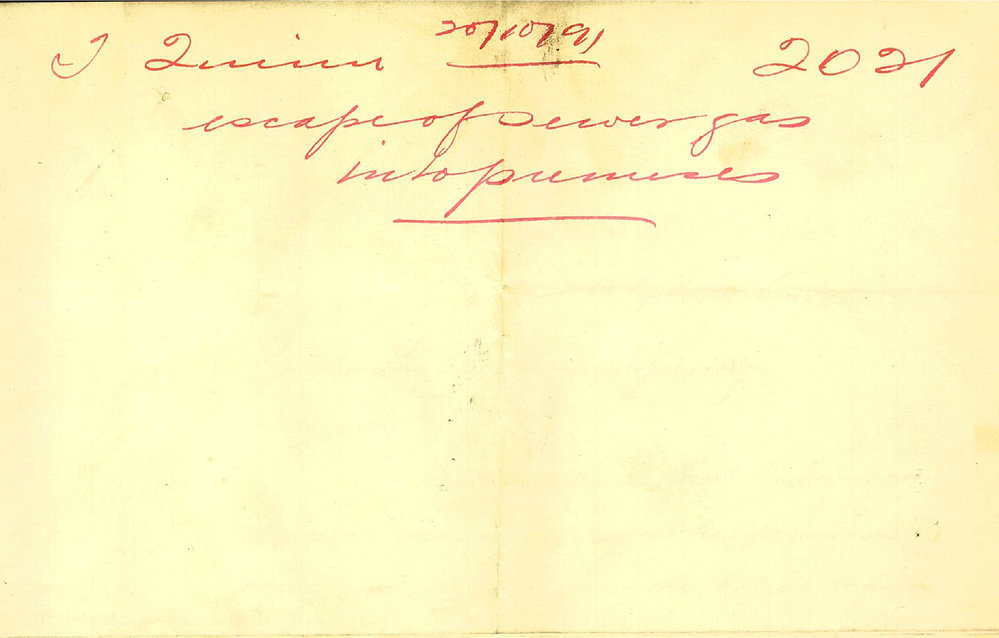 20/10/91
T Quinn 2021
escape of sewer gas
into premises